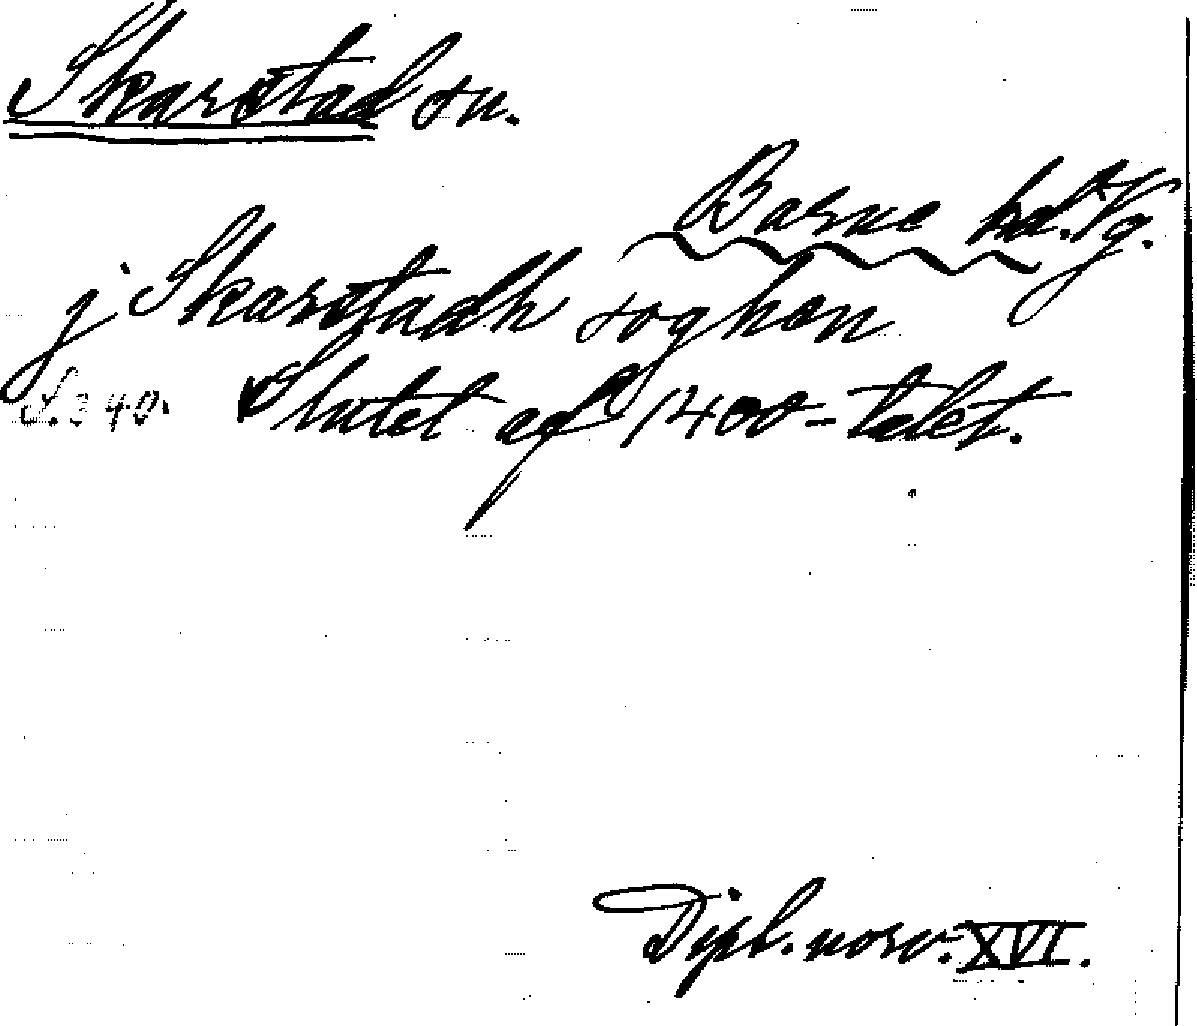 Skarstad sn.
Barne hd. Vg.
j Skarstadh soghen
S. 340. Slutet af 1400-talet.
Dipl. norv. XVI.